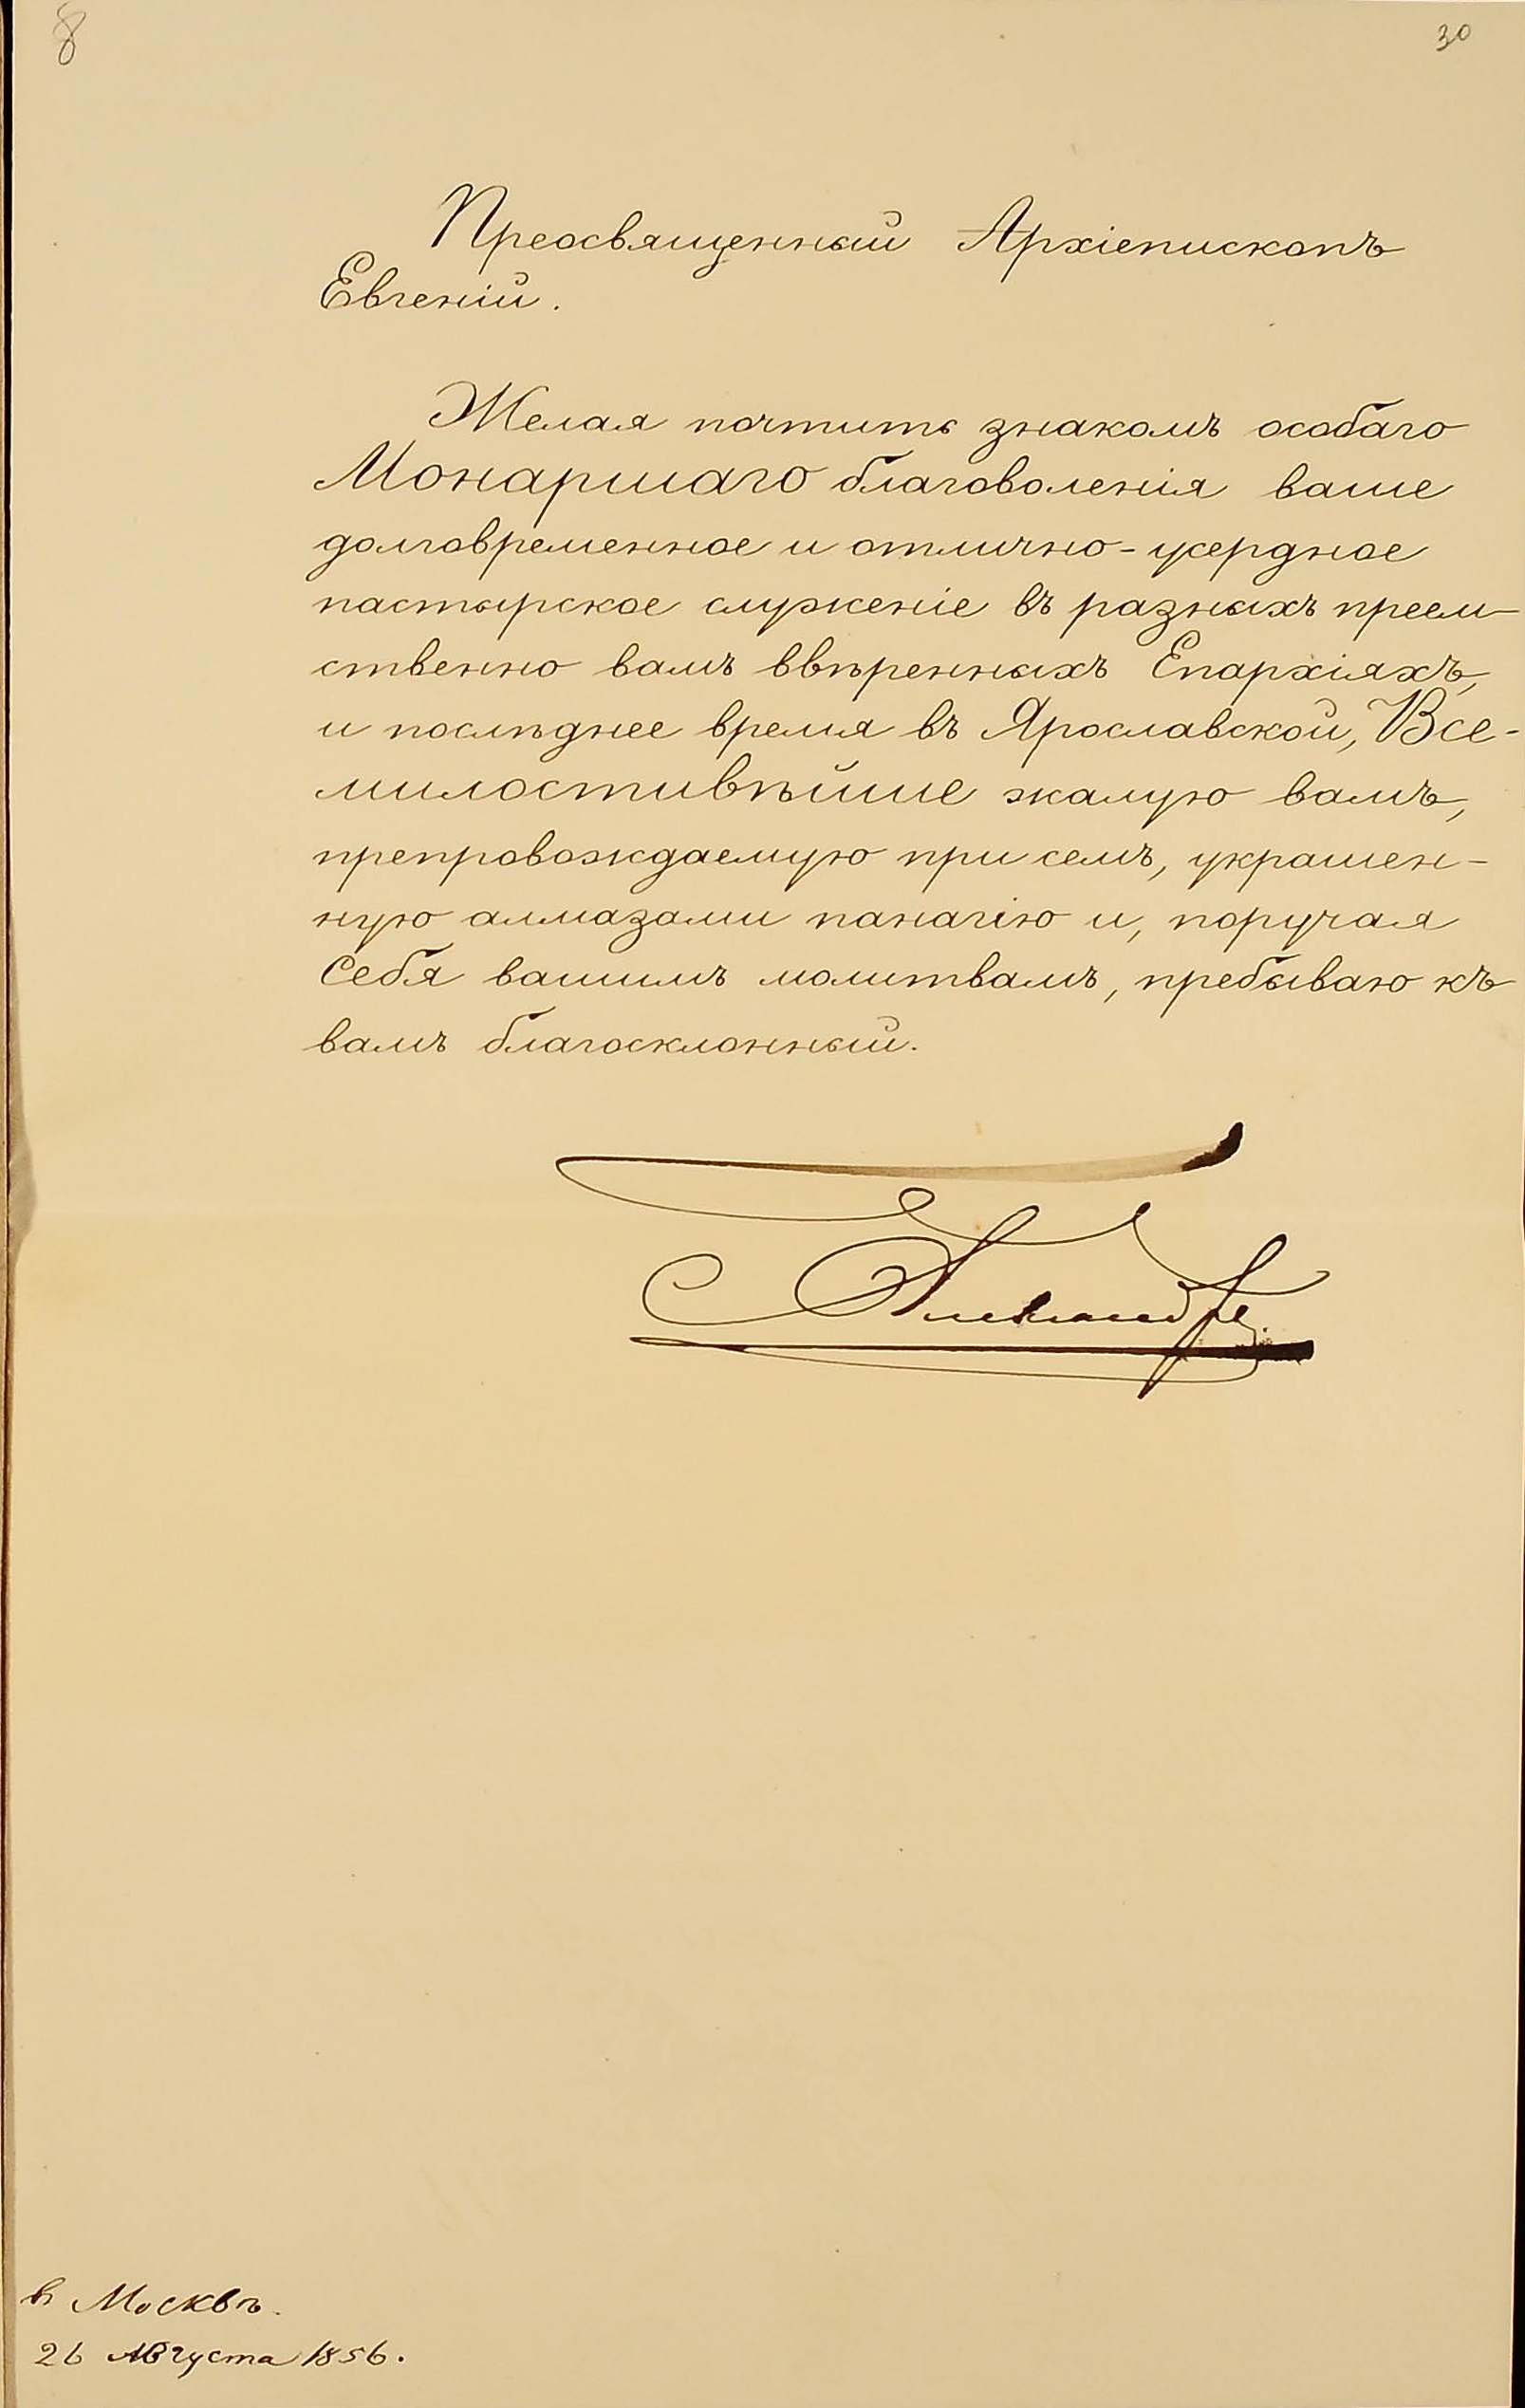 8
30
Преосвященный Архіепископъ
Евгеній.
Желая почтить знакомъ особаго
Монаршаго благоволенія ваше
долговременное и отлично-усердное
пастырское служеніе въ разныхъ преем-
ственно вамъ ввѣренныхъ Епархіяхъ,
и послѣднее время въ Ярославской, Все-
милостивѣйше жалую вамъ,
препровождаемую при семъ, украшен-
ную алмазами панагію и, поручая
Себя вашимъ молитвамъ, пребываю къ
вамъ благосклонный.
Александръ
в Москвѣ.
26 Августа 1856.